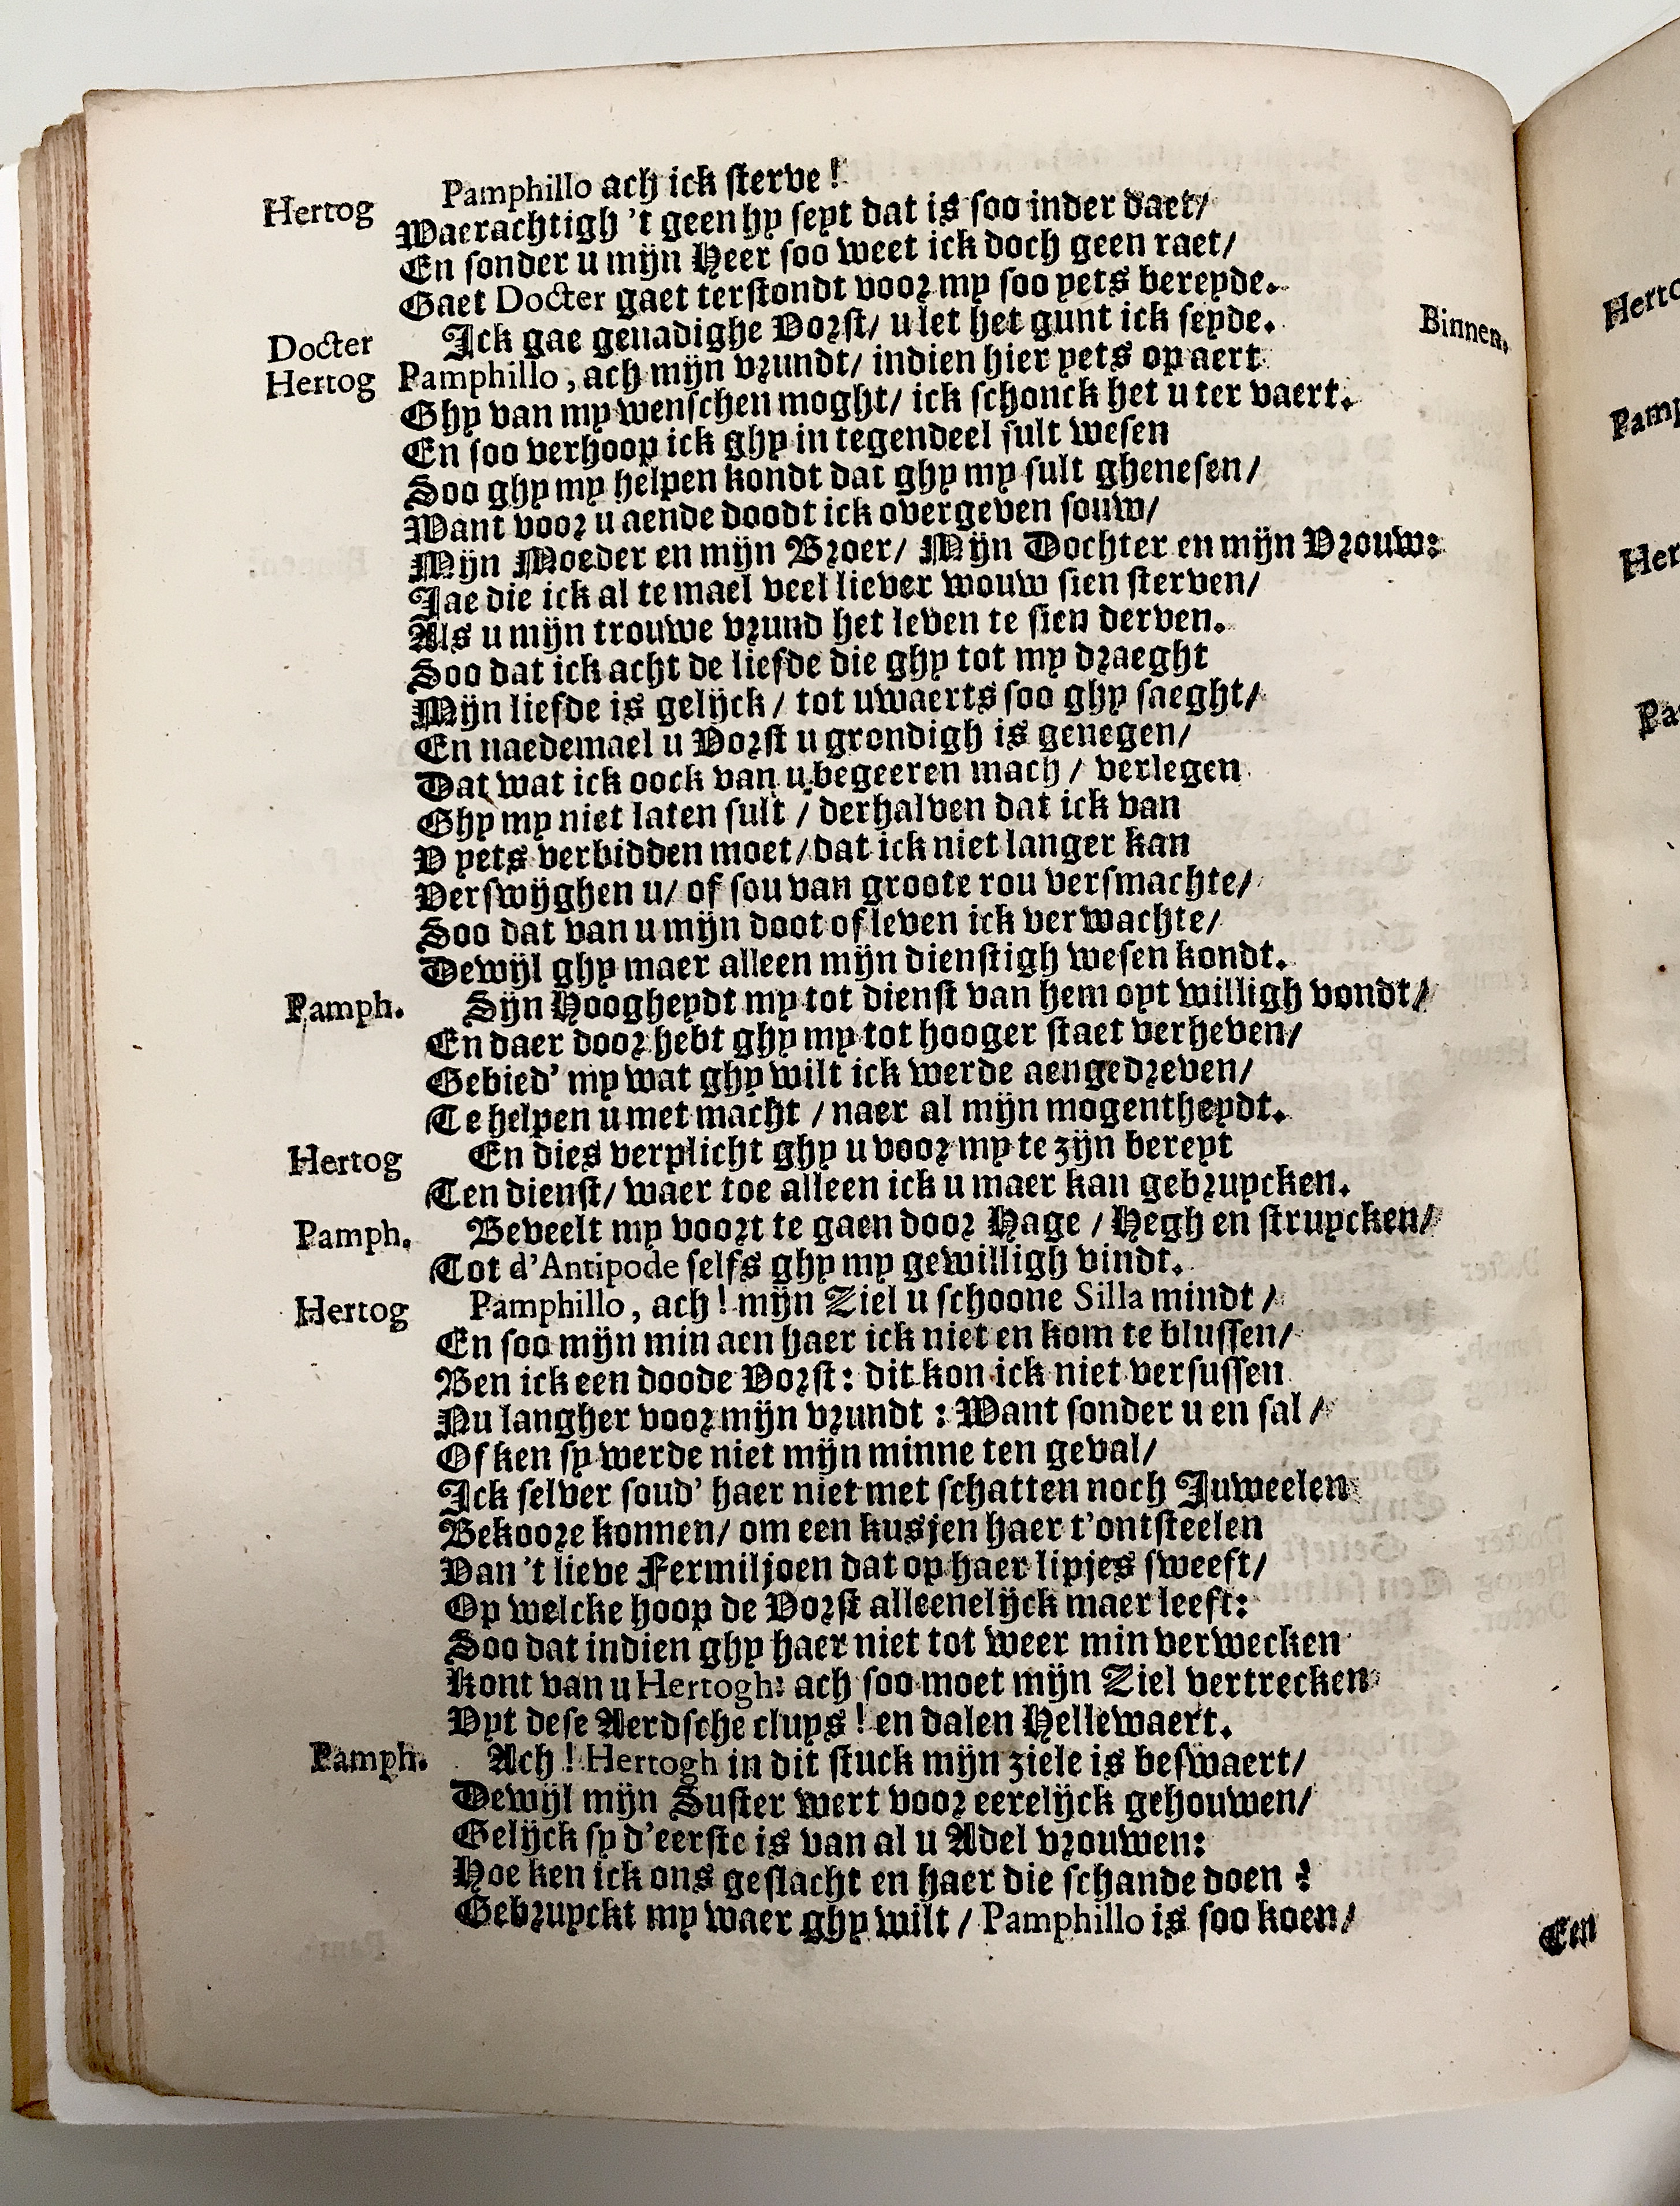 Hertog Pamphillo ach ick sterve!
Waerachtigh 't geen hy seyt dat is soo inder daet/
En sonder u mijn Heer soo weet ick doch geen raet/
Gaet Docter gaet terstondt voor my soo yets bereyde.
Docter Ick gae genadighe Vorst/ u let het gunt ick seyde. Binnen.
Hertog Pamphillo, ach mijn vrundt/ indien hier yets op aert
Ghy van my wenschen moght/ ick schonck het u ter vaert.
En soo verhoop ick ghy in tegendeel sult wesen
Soo ghy my helpen kondt dat ghy my sult ghenesen/
Want voor u aende doodt ick overgeven souw/
Mijn Moeder en mijn Broer/ Mijn Dochter en mijn Vrouw:
Jae die ick al te mael veel liever wouw sien sterven/
Als u mijn trouwe vrund het leven te sien derven.
Soo dat ick acht de liefde die ghy tot my draeght
Mijn liefde is gelijck/ tot uwaerts soo ghy saeght/
En naedemael u Vorst u grondigh is genegen/
Dat wat ick oock van u begeeren mach/ verlegen
Ghy my niet laten sult/ derhalven dat ick van
V yets verbidden moet/ dat ick niet langer kan
Verswijghen u/ of sou van groote rou versmachte/
Soo dat van u mijn doot of leven ick verwachte/
Dewijl ghy maer alleen mijn dienstigh wesen kondt.
Pamph. Sijn Hoogheydt my tot dienst van hem oyt willigh vondt/
En daer door hebt ghy my tot hooger staet verheven/
Gebied' my wat ghy wilt ick werde aengedreven/
Te helpen u met macht/ naer al mijn mogentheydt.
Hertog En dies verplicht ghy u voor my te zijn bereyt
Ten dienst/ waer toe alleen ick u maer kan gebruycken.
Pamph. Beveelt my voort te gaen door Hage/ Hegh en struycken/
Tot d'Antipode selfs ghy my gewilligh vindt.
Hertog Pamphillo, ach! mijn Ziel u schoone Silla mindt/
En soo mijn min aen haer ick niet en kom te blussen/
Ben ick een doode Vorst: dit kon ick niet versussen
Nu langher voor mijn vrundt: Want sonder u en sal/
Of ken sy werde niet mijn minne ten geval/
Ick selver soud' haer niet met schatten noch Juweelen
Bekoore konnen/ om een kusjen haer t'ontsteelen
Van 't lieve Fermiljoen dat op haer lipjes sweeft/
Op welcke hoop de Vorst alleenelijck maer leeft:
Soo dat indien ghy haer niet tot weer min verwecken
Kont van u Hertogh: ach soo moet mijn Ziel vertrecken
Vyt dese Aerdsche cluys! en dalen Hellewaert.
Pamph. Ach! Hertogh in dit stuck mijn ziele is beswaert/
Dewijl mijn Suster wert voor eerelijck gehouwen/
Gelijck sy d'eerste is van al u Adel vrouwen:
Hoe ken ick ons geslacht en haer die schande doen?
Gebruyckt my waer ghy wilt/ Pamphillo is soo koen/
Een